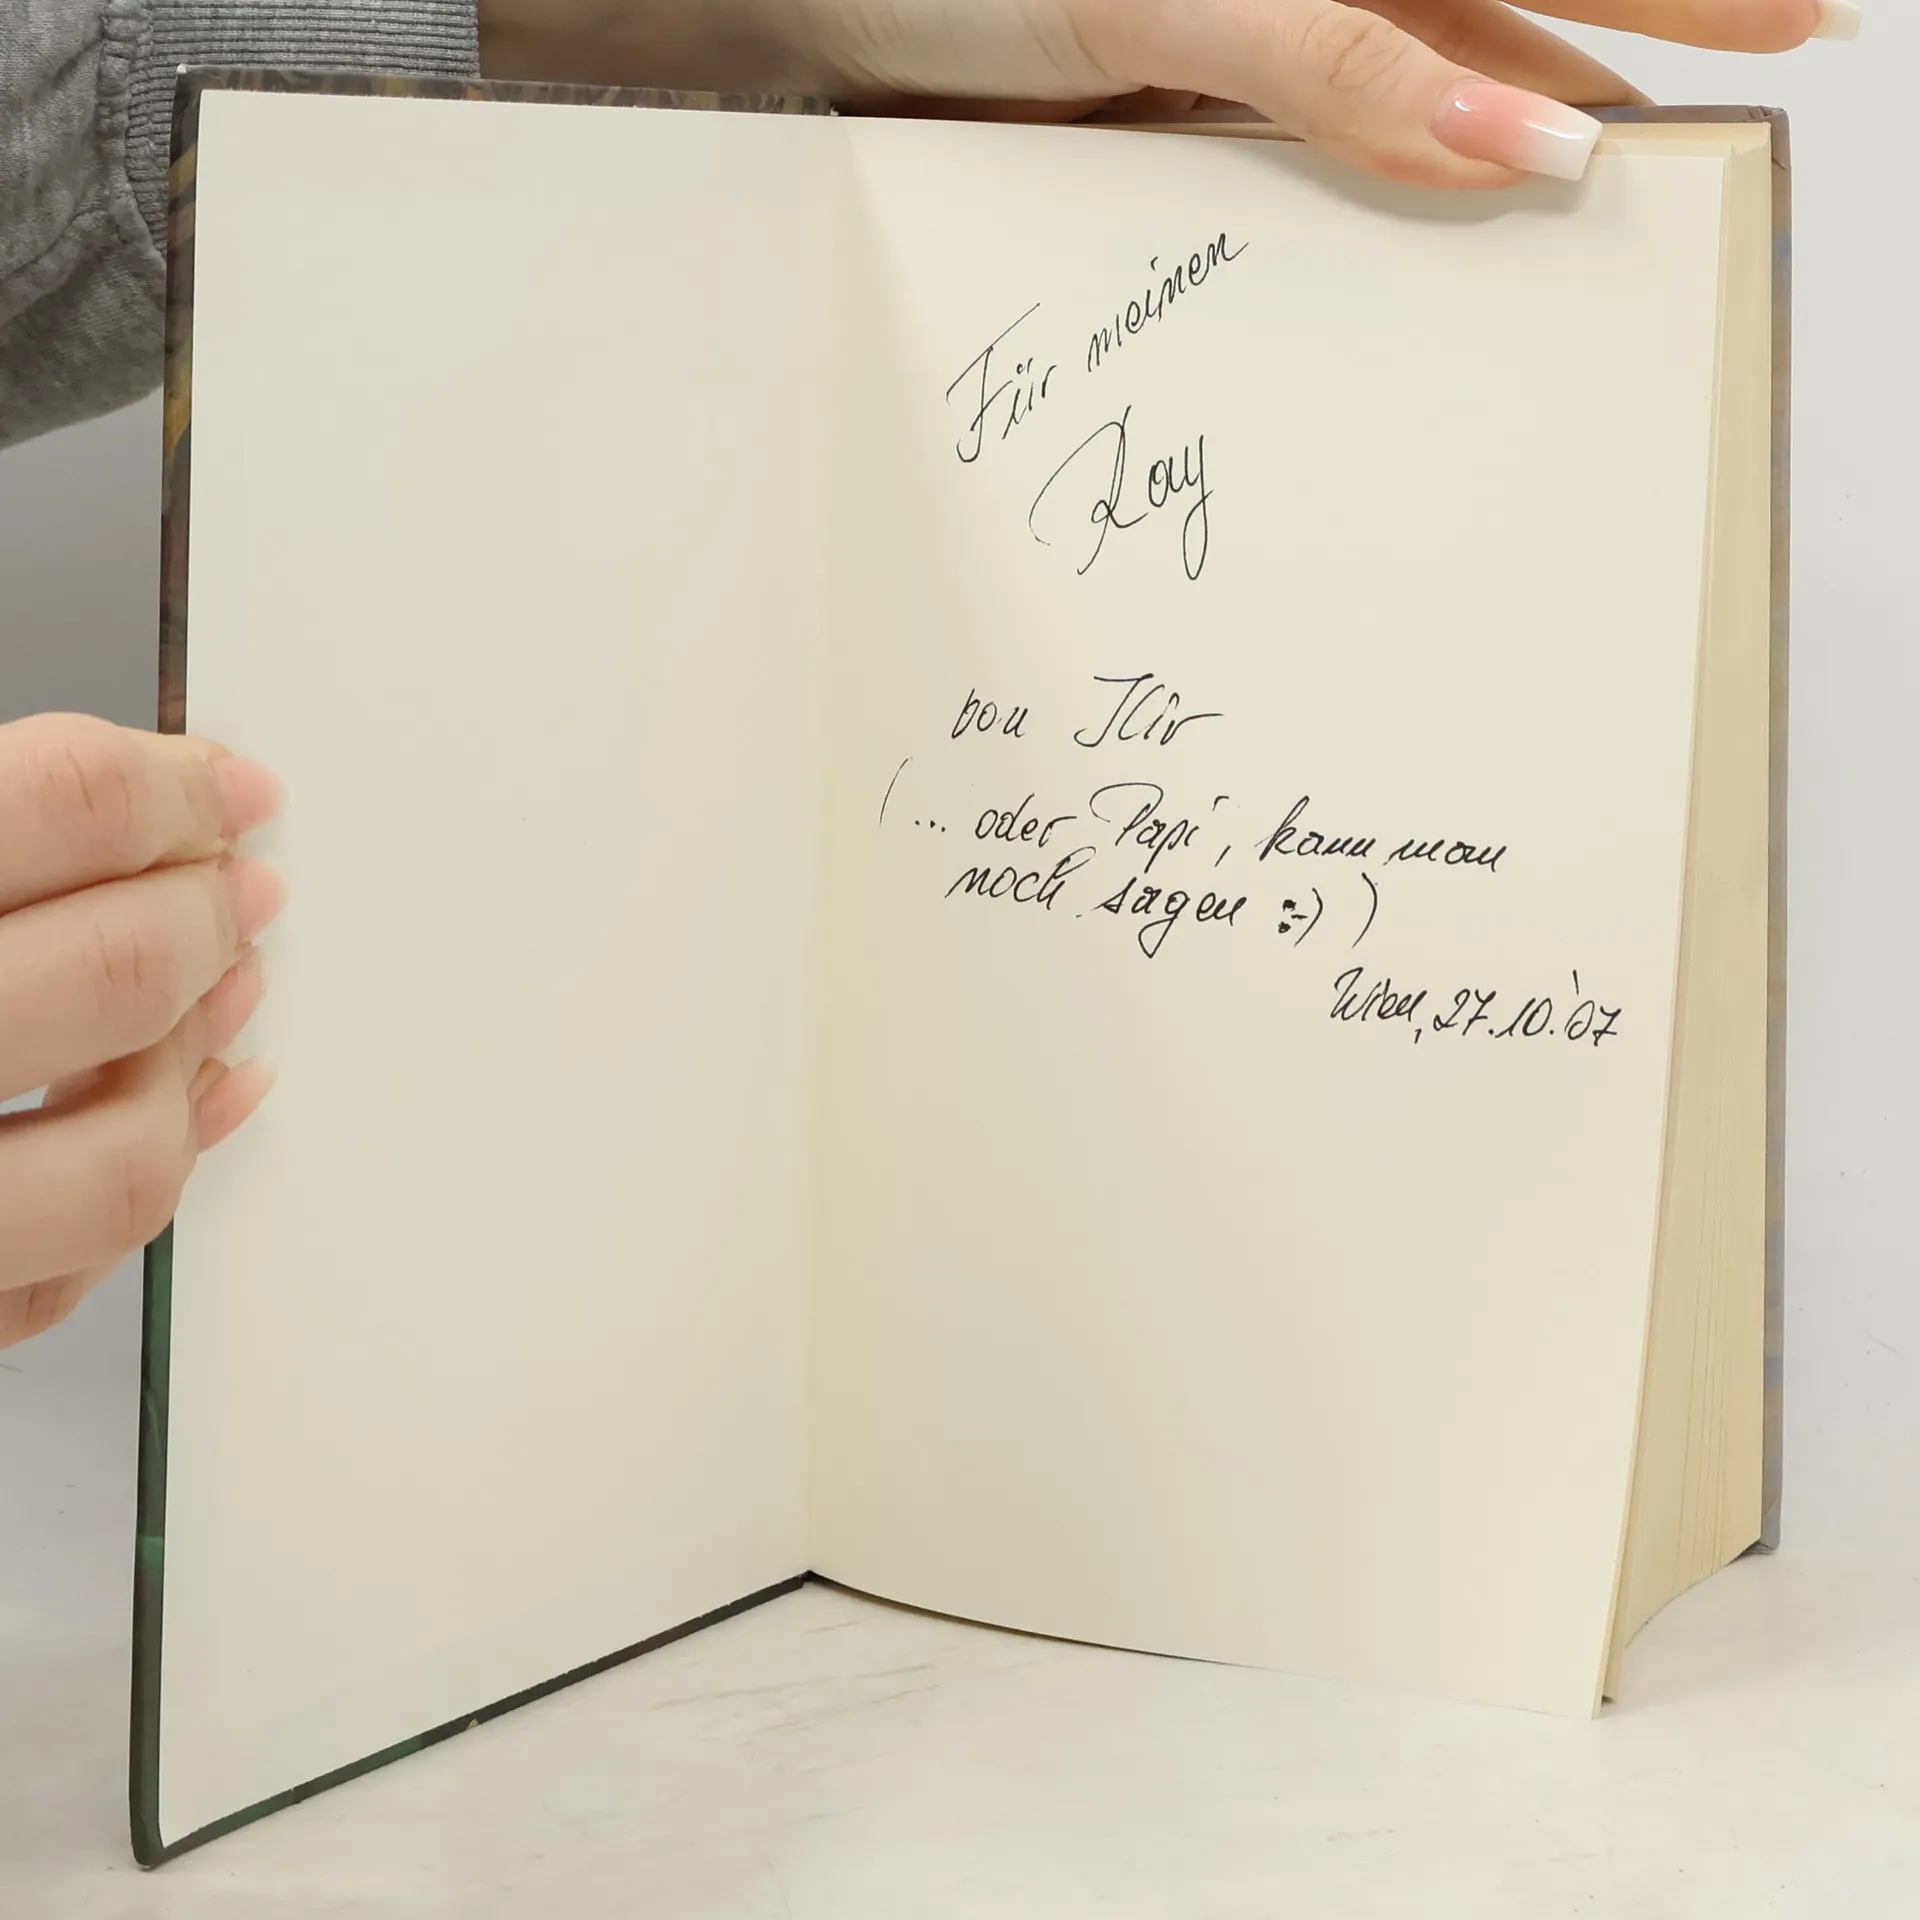 Für meinen
Ray
von Ilir
(... oder Papi, kann man
noch sagen :-) )
Wien, 27.10.'07